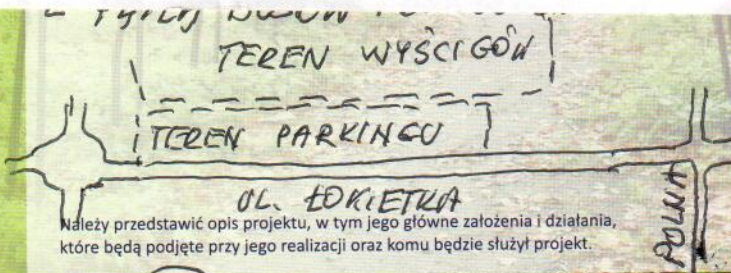 TEREN WYŚCIGÓW
TEREN PARKINGU
UL. ŁOKIETKA
POLNA
Należy przedstawić opis projektu, w tym jego główne założenia i działania,
które będą podjęte przy jego realizacji oraz komu będzie służył projekt.